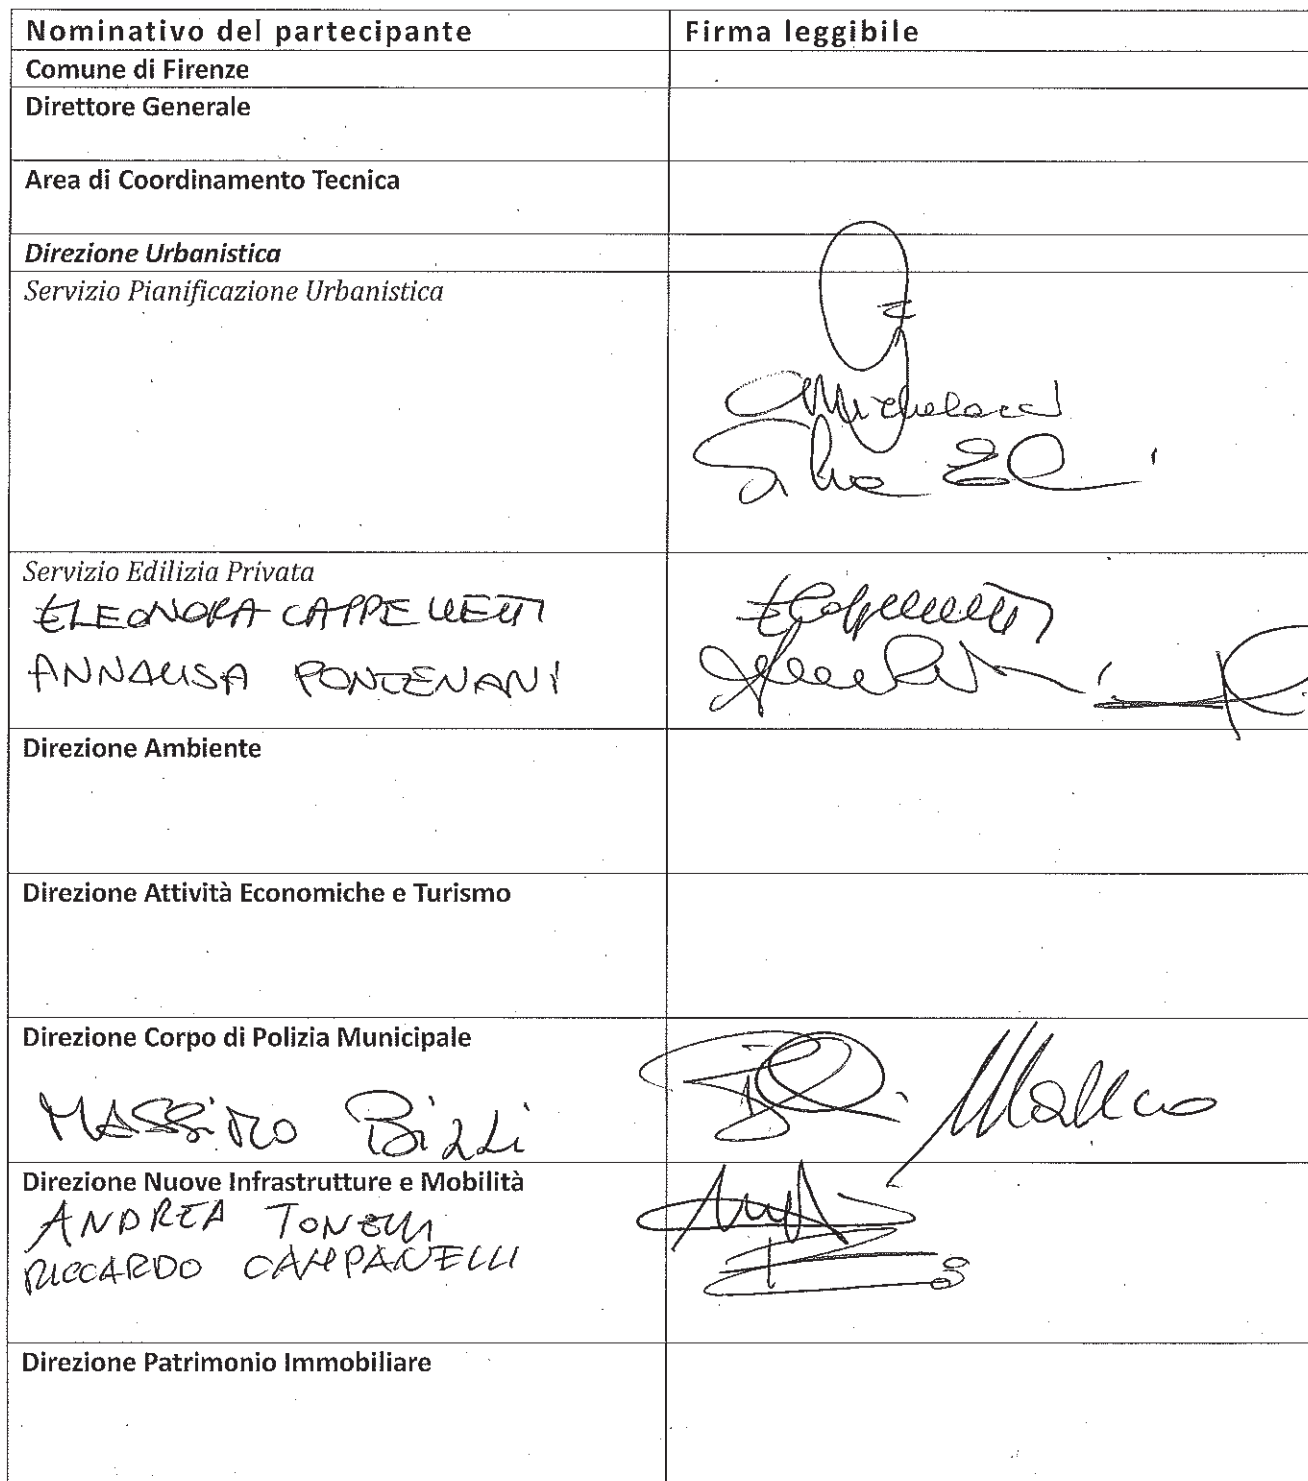 Nominativo del partecipante Firma leggibile
Comune di Firenze
Direttore Generale
Area di Coordinamento Tecnica
Direzione Urbanistica
Servizio Pianificazione Urbanistica
Michelacci
Silvia
Servizio Edilizia Privata
ELEONORA CAPPELLETTI
ANNALISA PONTENANI
Direzione Ambiente
Direzione Attività Economiche e Turismo
Direzione Corpo di Polizia Municipale
MASSIMO
Direzione Nuove Infrastrutture e Mobilità
ANDREA TONELLI
RICCARDO CAMPANELLI
Direzione Patrimonio Immobiliare